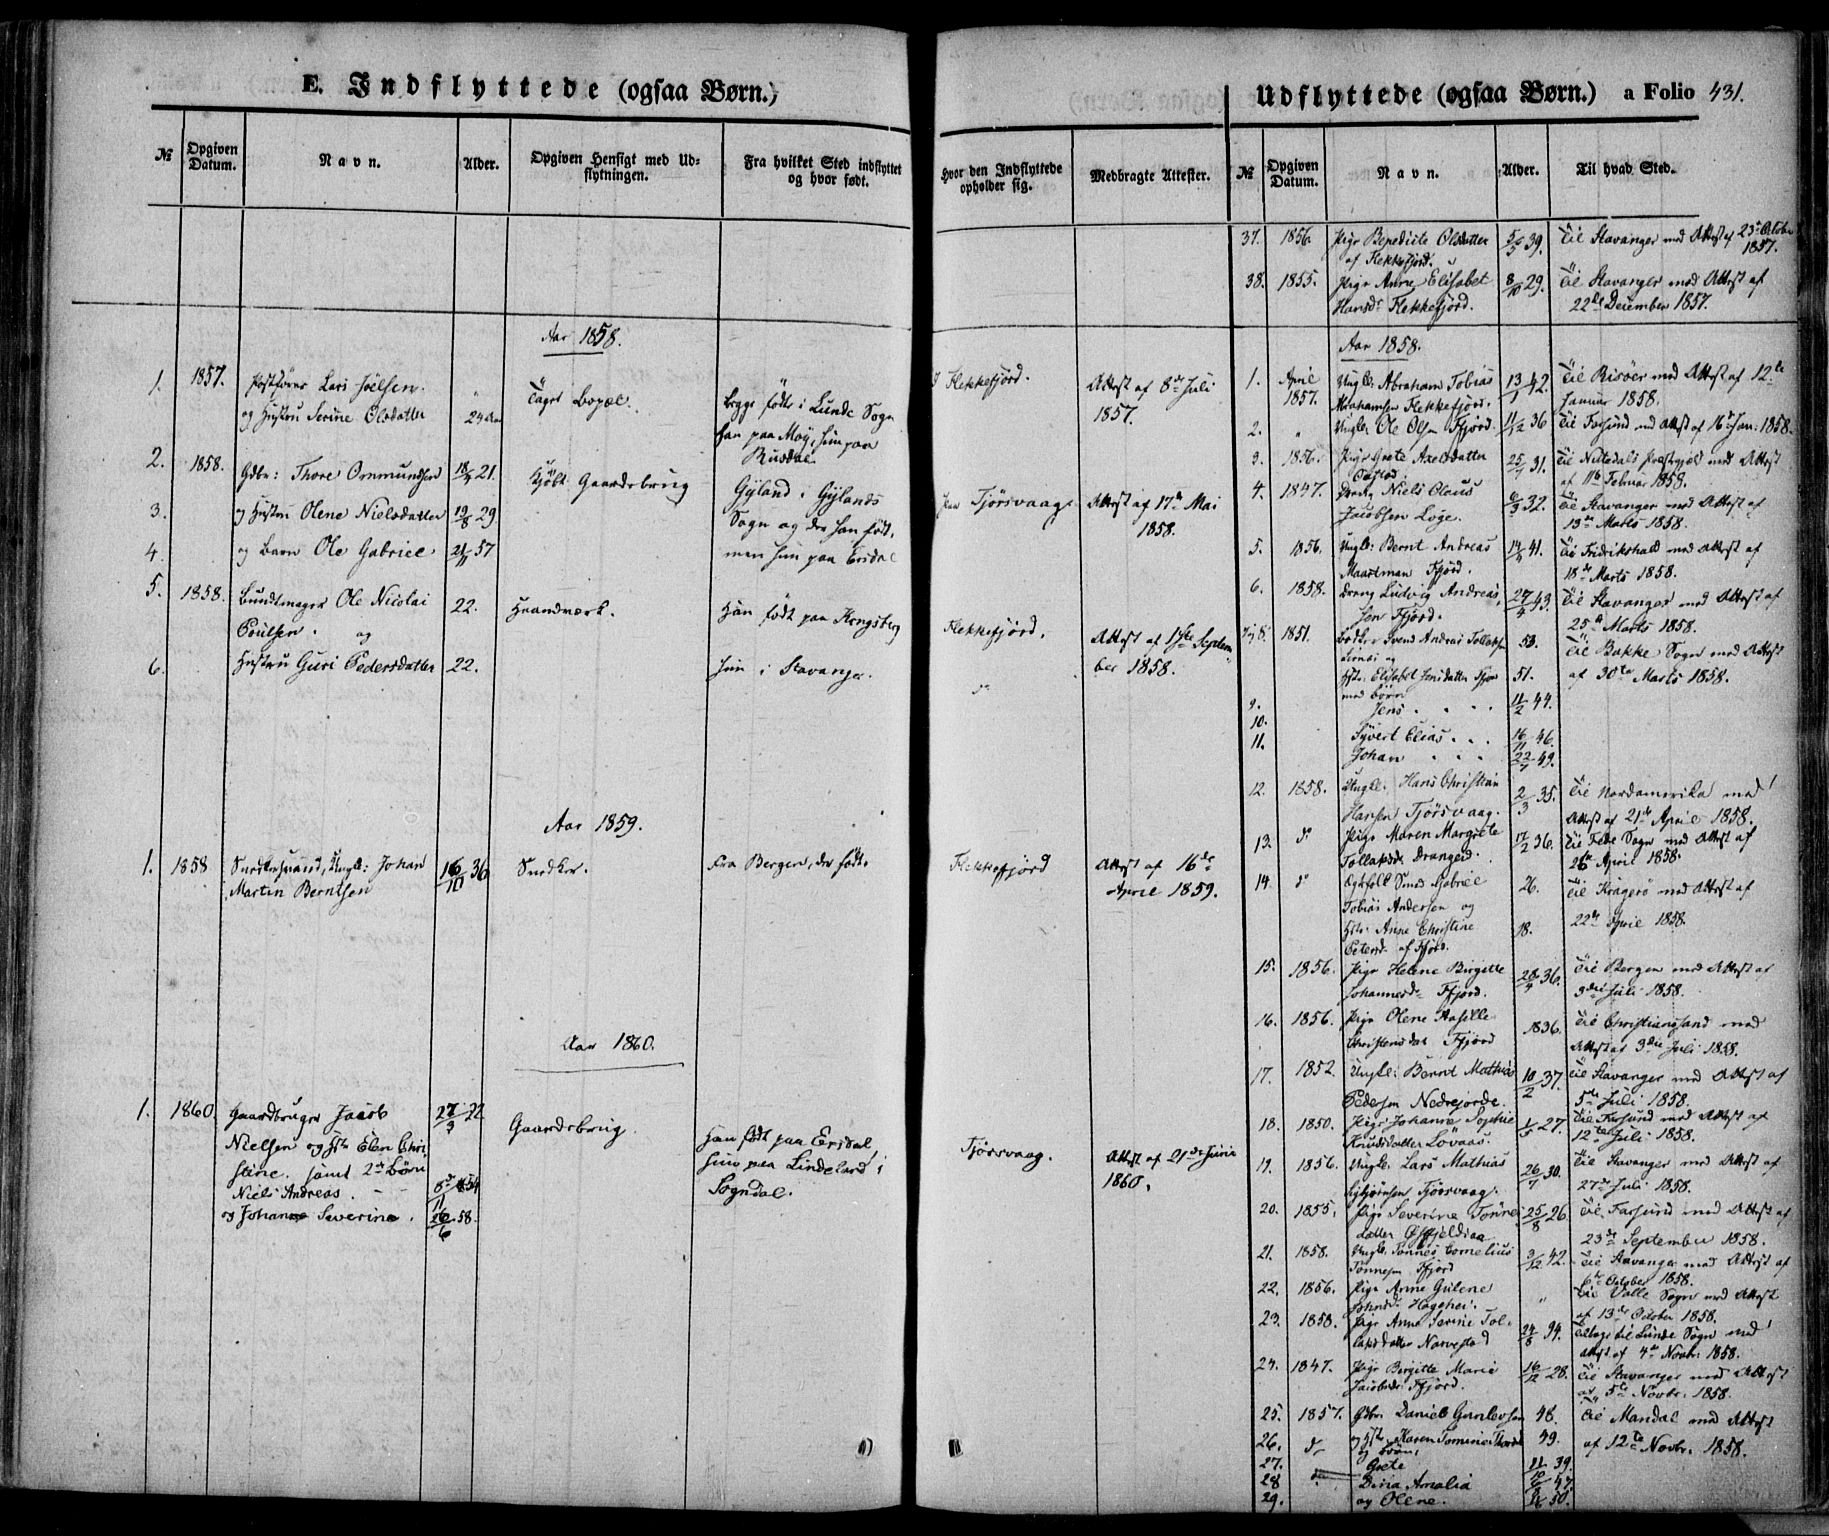 E. Indflyttede (ogsaa Børn.)
№ Opgiven Datum. Navn. Alder. Opgiven Hensigt med Udflytningen. Fra hvilket Sted indflyttet og hvor født.
Aar 1858.
1. 1857. Postfører Lars Joelsen.
og Hustru Serine Olsdatter 24 Aar Taget Bopæl. begge fødte i Lunde Sogn
han paa Moy, hun paa
Rusdal
2. 1858. Gdbr: Thore Ommundsen 18/4 21. Kjøbt Gaardsbrug Gyland i Gylands
3. og Hustru Olene Nielsdatter 19/8 29 Sogn og der han født,
4. og Barn Ole Gabriel 21/11 57 men hun paa Ersdal
5. 1858. Bundtmager Ole Nicolai 22. Haandværk. Han født paa Kongsberg
Poulsen. og
6. Hustru Guri Pedersdatter 22. hun i Stavanger.
Aar 1859.
1. 1858 Snedkersvend, Ungk: Johan 16/10 36 Snedker. Fra Bergen, der født.
Martin Berntsen
Aar 1860.
1. 1860 Gaardbruger Jacob 27/3 22 Gaardsbrug. Han født paa Ersdal,
Nielsen og Hst: Elen Chri- hun paa Lindeland i
stine. samt 2de Børn Sogndal.
Niels Andreas. 54
og Johanne Severine. 58.
Udflyttede (ogsaa Børn.) a Folio 431.
Hvor den Indflyttede opholder sig. Medbragte Attester. № Opgiven Datum. Navn. Alder. Til hvad Sted.
I Flekkefjord. Attest af 8de Juli
1857.
paa Tjørsvaag Attest af 17de Mai
1858.
Flekkefjord. Attest af 1ste Septem-
ber 1858.
do
Flekkefjord Attest af 16de
April 1859.
Tjørsvaag. Attest af 21de Junii
1860.
37. 1856. Pige Benedicte Olsdatter 5/5 39. Til Stavanger med Attest af 23de Octobr
af Flekkefjord. 1857.
38. 1855. Pige Anne Elisabet 8/10 29. Til Stavanger med Attest af
Hansdr Flekkefjord. 22de December 1857.
Aar 1858.
1. April Ungk: Abraham Tobias 13/1 42. Til Risøer med Attest af 12te
1857. Abrahamsen Flekkefjord. Januar 1858.
2. " Ungk: Ole Olsen Ffjord. 11/12 36 Til Farsund med Attest af 16de Jan: 1858.
3. 1856. Pige Grete Axelsdatter 25/4 31. Til Nittedals Prestegjeld med Attest
af 11te Februar 1858.
4. 1847. Dreng Niels Olaus 6/3 32. Til Stavanger med Attest af
Jacobsen Loge. 13de Marts 1858.
5. 1856. Ungk: Bernt Andreas 14/4 41. Til Fridrikshald med Attest af
Maartman Ffjord. 18de Marts 1858.
6. 1858. Dreng Ludvig Andreas 27/4 43. Til Stavanger med Attest af
Jensen Ffjord. 25de Marts 1858.
7 og 8. 1851. Bødker Svend Andreas Tollaksen 53. Til Bakke Sogn med Attest
og
Hstr: Elisabet Jensdatter Ffjord 51. af 30te Marts 1858.
med Børn
9. Jens 11/2 44.
10. Syvert Elias 16/11 46.
11. Johan 22/7 49.
12. 1858. Ungk: Hans Christian 2/3 35. Til Nordamerika med
Hansen Tjørsvaag. Attest af 21de April 1858.
13. do Pige Maren Margrete 17/2 36. Til Fede Sogn med Attest af
Tollaksdr Drangeid. 26de April 1858.
14. do Egtfolk Smed Gabriel 26. Til Kragerø med Attest af
Tobias Andersen og 22de April 1858.
Hstr: Anne Christine 18.
Petersdr af Ffjord.
15. 1856. Pige Helene Birgitte 28/4 36. Til Bergen med Attest af
Johannesdr Ffjord. 3die Juli 1858.
16. 1856. Pige Olene Aaselle 1836. Til Christianssand med
Christensdat Ffjord Attest af 3die Juli 1858.
17. 1852. Ungk: Bernt Mathias 10/2 37. Til Stavanger med Attest af
Pedersen Nedrejorde. 5te Juli 1858.
18. 1850. Pige Johanne Sophie 1/5 27. Til Farsund med Attest af
Knudsdatter Løvaas. 12te Juli 1858.
19. 1856. Ungk: Lars Mathias 26/7 30. Til Stavanger med Attest af
Sigbjørnsen Tjørsvaag. 27de Juli 1858.
20. 1855. Pige Severine Tønnes- 25/8 26. Til Farsund med Attest af
datter 23de September 1858.
21. 1858. Ungk: Tønnes Cornelius 3/12 42. Til Stavanger med Attest af
Tønnesen Ffjord 6te October 1858.
22. 1856. Pige Anne Gulene " Til Valle Sogn med Attest
Høgehei. af 13de October 1858.
23. 1858. Pige Anne Serine Tol- 24/8 34. Tilbage til Lunde Sogn med
laksdatter Narvestad Attest af 4de Novbr: 1858.
24. 1847. Pige Birgitte Marie 16/12 28. Til Stavanger med Attest
Jacobsdr Ffjord. af 5te Novbr: 1858.
25. 1857. Gdbr: Daniel Gunlevsen 48. Til Mandal med Attest
26. do og Hstr: Karen Tomine 49. af 12te Novbr: 1858.
og Børn,
27. Grete 11/10 39.
28 Dina Amalia 47.
29. og Olene. 50.